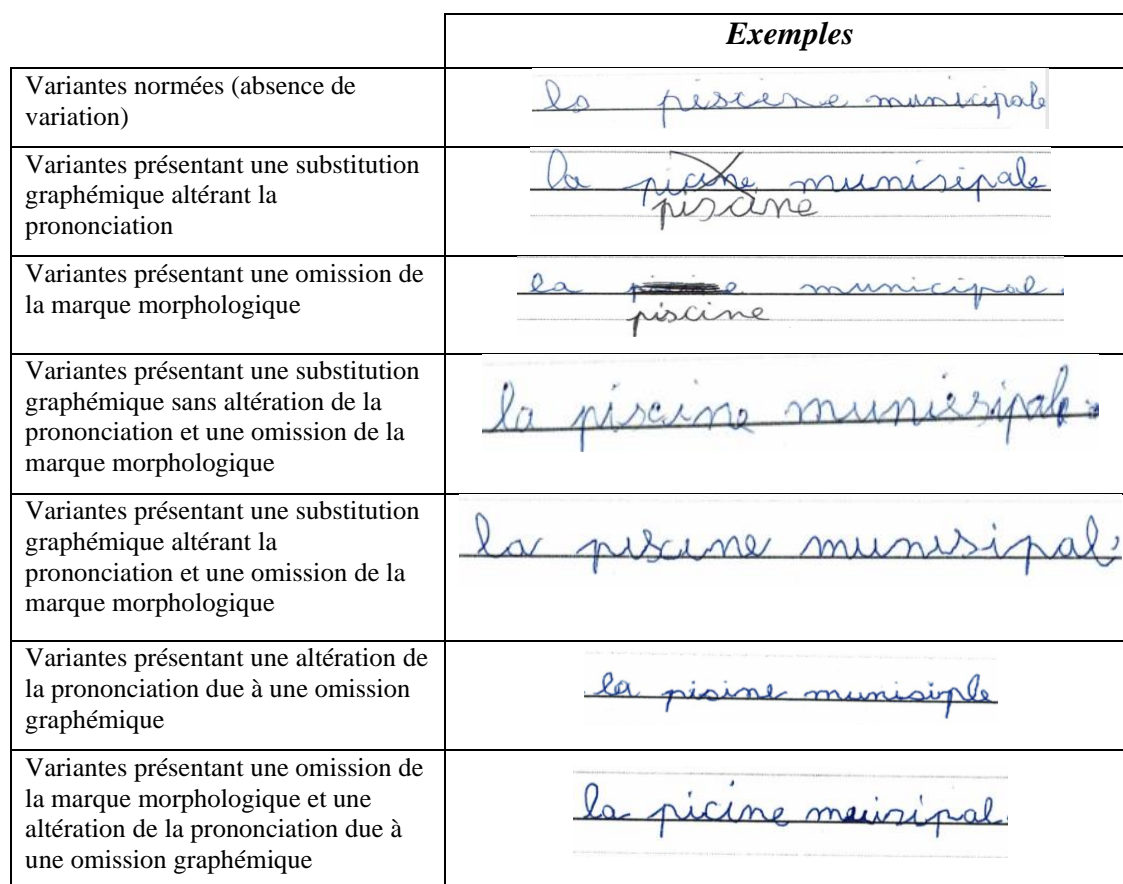 Exemples
Variantes normées (absence de
variation)
la piscine municipale
Variantes présentant une substitution
graphémique altérant la
prononciation
la picine munisipale
piscine
Variantes présentant une omission de
la marque morphologique
la municipal.
piscine
Variantes présentant une substitution
graphémique sans altération de la
prononciation et une omission de la
marque morphologique
la piscine
Variantes présentant une substitution
graphémique altérant la
prononciation et une omission de la
marque morphologique
la piscine munisipal
Variantes présentant une altération de
la prononciation due à une omission
graphémique
la pisine munisiple
Variantes présentant une omission de
la marque morphologique et une
altération de la prononciation due à
une omission graphémique
la picine